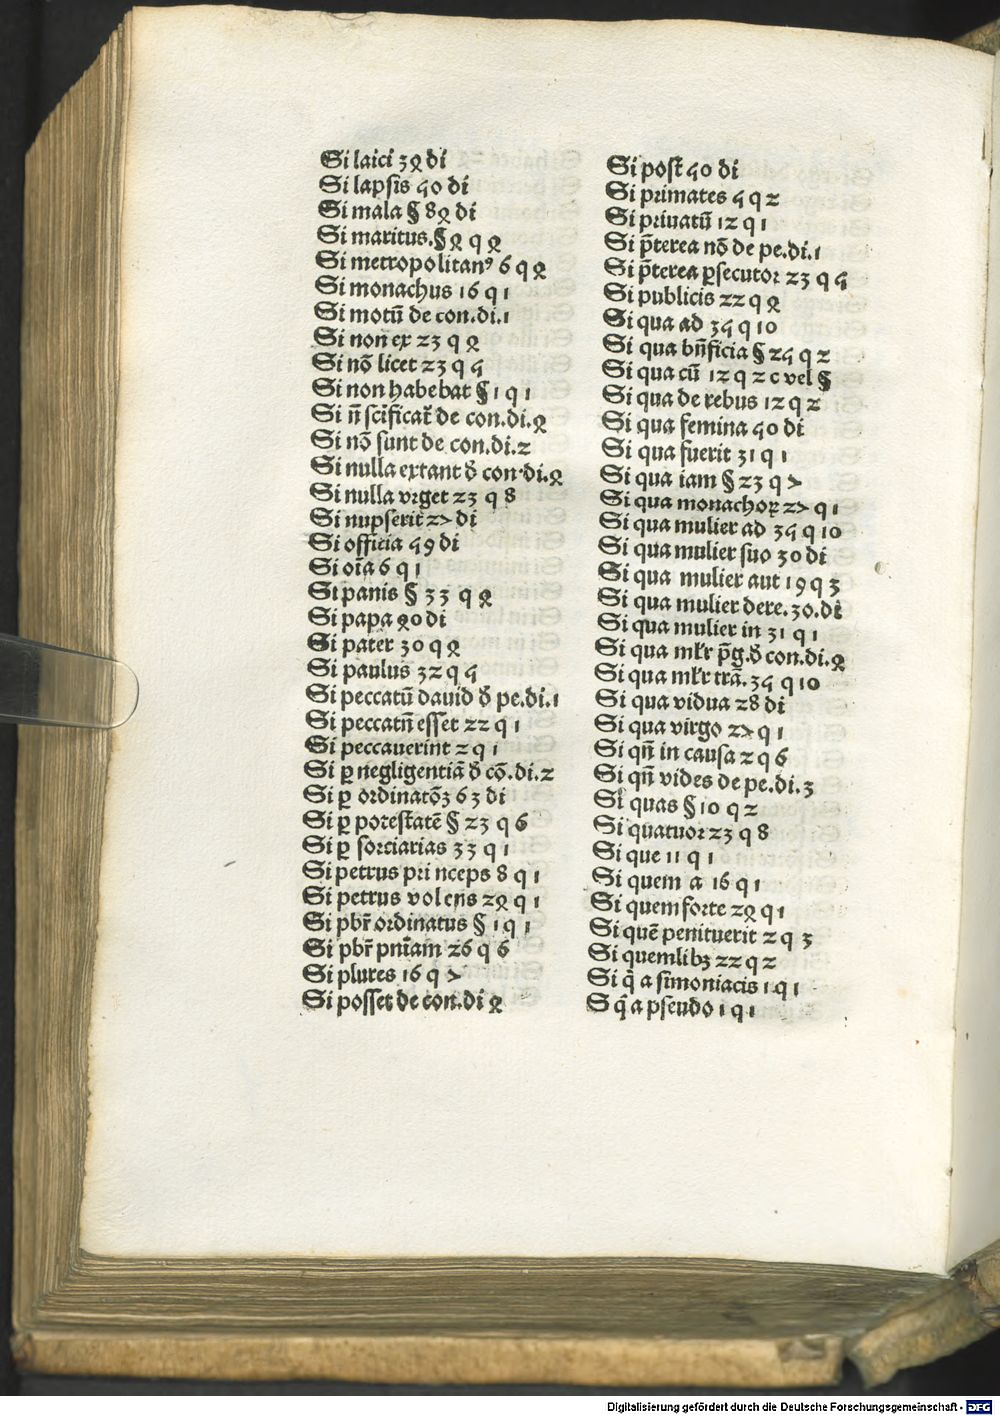 Si laici 34 di
Si lapsis 50 di
Si mala § 84 di
Si maritus.§ 4 q 4
Si metropolitanꝰ 6 q 4
Si monachus 16 q 1
Si motū de con.di.1
Si non̄ ex 23 q 4
Si nō licet 23 q 5
Si non habebat § 1 q 1
Si n̄ sc̄ificat̄ de con.di.4
Si nō sunt de con.di.2
Si nulla extant đ con.di.4
Si nulla vrget 23 q 8
Si nupserit 27 di
Si officia 59 di
Si oīa 6 q 1
Si panis § 33 q 4
Si papa 40 di
Si pater 30 q 4
Si paulus 32 q 5
Si peccatū dauid đ pe.di.1
Si peccatū esset 22 q 1
Si peccauerint 2 q 1
Si ꝑ negligentiā đ cō.di.2
Si ꝑ ordinatōꝫ 63 di
Si ꝑ potestatē § 23 q 6
Si ꝑ sorciarias 33 q 1
Si petrus princeps 8 q 1
Si petrus volens 24 q 1
Si pbr̄ ordinatus § 1 q 1
Si pbr̄ pnīam 26 q 6
Si plures 16 q 7
Si posset de con.di 4
Si post̄ 50 di
Si primates 5 q 2
Si priuatū 12 q 1
Si p̄terea nō de pe.di.1
Si p̄terea ꝑsecutor 23 q 5
Si publicis 22 q 4
Si qua ad 35 q 10
Si qua bn̄ficia § 25 q 2
Si qua cū 12 q 2 c vel §
Si qua de rebus 12 q 2
Si qua femina 50 di
Si qua fuerit 31 q 1
Si qua iam § 23 q 7
Si qua monachoꝝ 27 q 1
Si qua mulier ad 35 q 10
Si qua mulier suo 30 di
Si qua mulier aut 19 q 3
Si qua mulier dere.30.di
Si qua mulier in 31 q 1
Si qua młr p̄g.đ con.di.4
Si qua młr trā.35 q 10
Si qua vidua 28 di
Si qua virgo 27 q 1
Si qn̄ in causa 2 q 6
Si qn̄ vides de pe.di.3
Si quas § 10 q 2
Si quatuor 23 q 8
Si que 11 q 1
Si quem a 16 q 1
Si quem forte 24 q 1
Si quē penituerit 2 q 3
Si quemlibꝫ 22 q 2
Si q̄ a simoniacis 1 q 1
S q̄ a pseudo 1 q 1
Digitalisierung gefördert durch die Deutsche Forschungsgemeinschaft - DFG